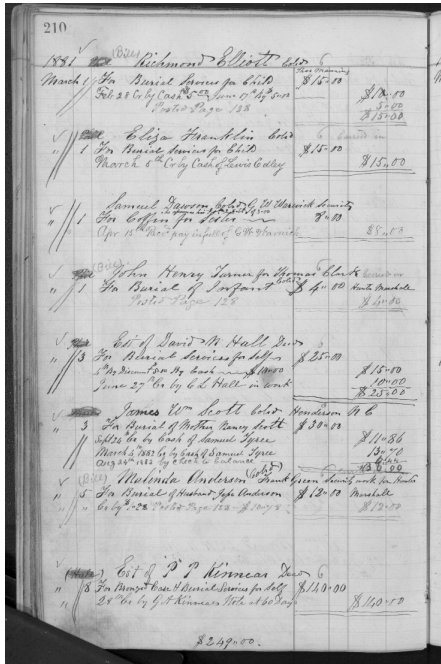 210
1881 (Bill) Richmond Elliott Cold 6
March 1 For Burial Services for Child $15.00
Feb 28 Cr by Cash 5.00 June 17th by 5.00 $10.00
5.00
Posted Page 128 $15.00
Eliza Franklin Cold 6
1 For Burial Services for Child $15.00
March 5th Cr by Cash of Lewis Edley $15.00
Samuel Dawson Cold G W Warwick Security
1 For Coffin for Sister 8.00
Apr 12th pay in full of G W Warwick $8.00
(Bill) John Henry Turner for Thomas Clark
1 For Burial of Infant Cold $4.00 Marshall
Posted Page 128 $4.00
Est of David N Hall Decd 6
3 For Burial Services for Self $25.00
5th By Discount 5.00 By Cash $10.00 $15.00
June 27th Cr by C L Hall in work 10.00
$25.00
James Wm Scott Cold Henderson N C
3 For Burial of Mother Nancy Scott $30.00
Sept 26 Cr by Cash of Samuel Tyree $11.86
March 4th 1882 Cr by Cash of Samuel Tyree 13.70
Aug 24th 1882 by Check to balance
$30.00
(Bill) Malenda Anderson (Cold) Frank Green Security work for
5 For Burial of Husband Jafe Anderson $12.00 Marshall
Cr by 1.28 Posted Page 128 $10.78 $12.00
(Note) Est of P P Kinnear Decd 6
8 For Bronze Case & Burial Services for Self $140.00
28th Cr by G A Kinnears Note at 60 Days $140.00
$249.00.